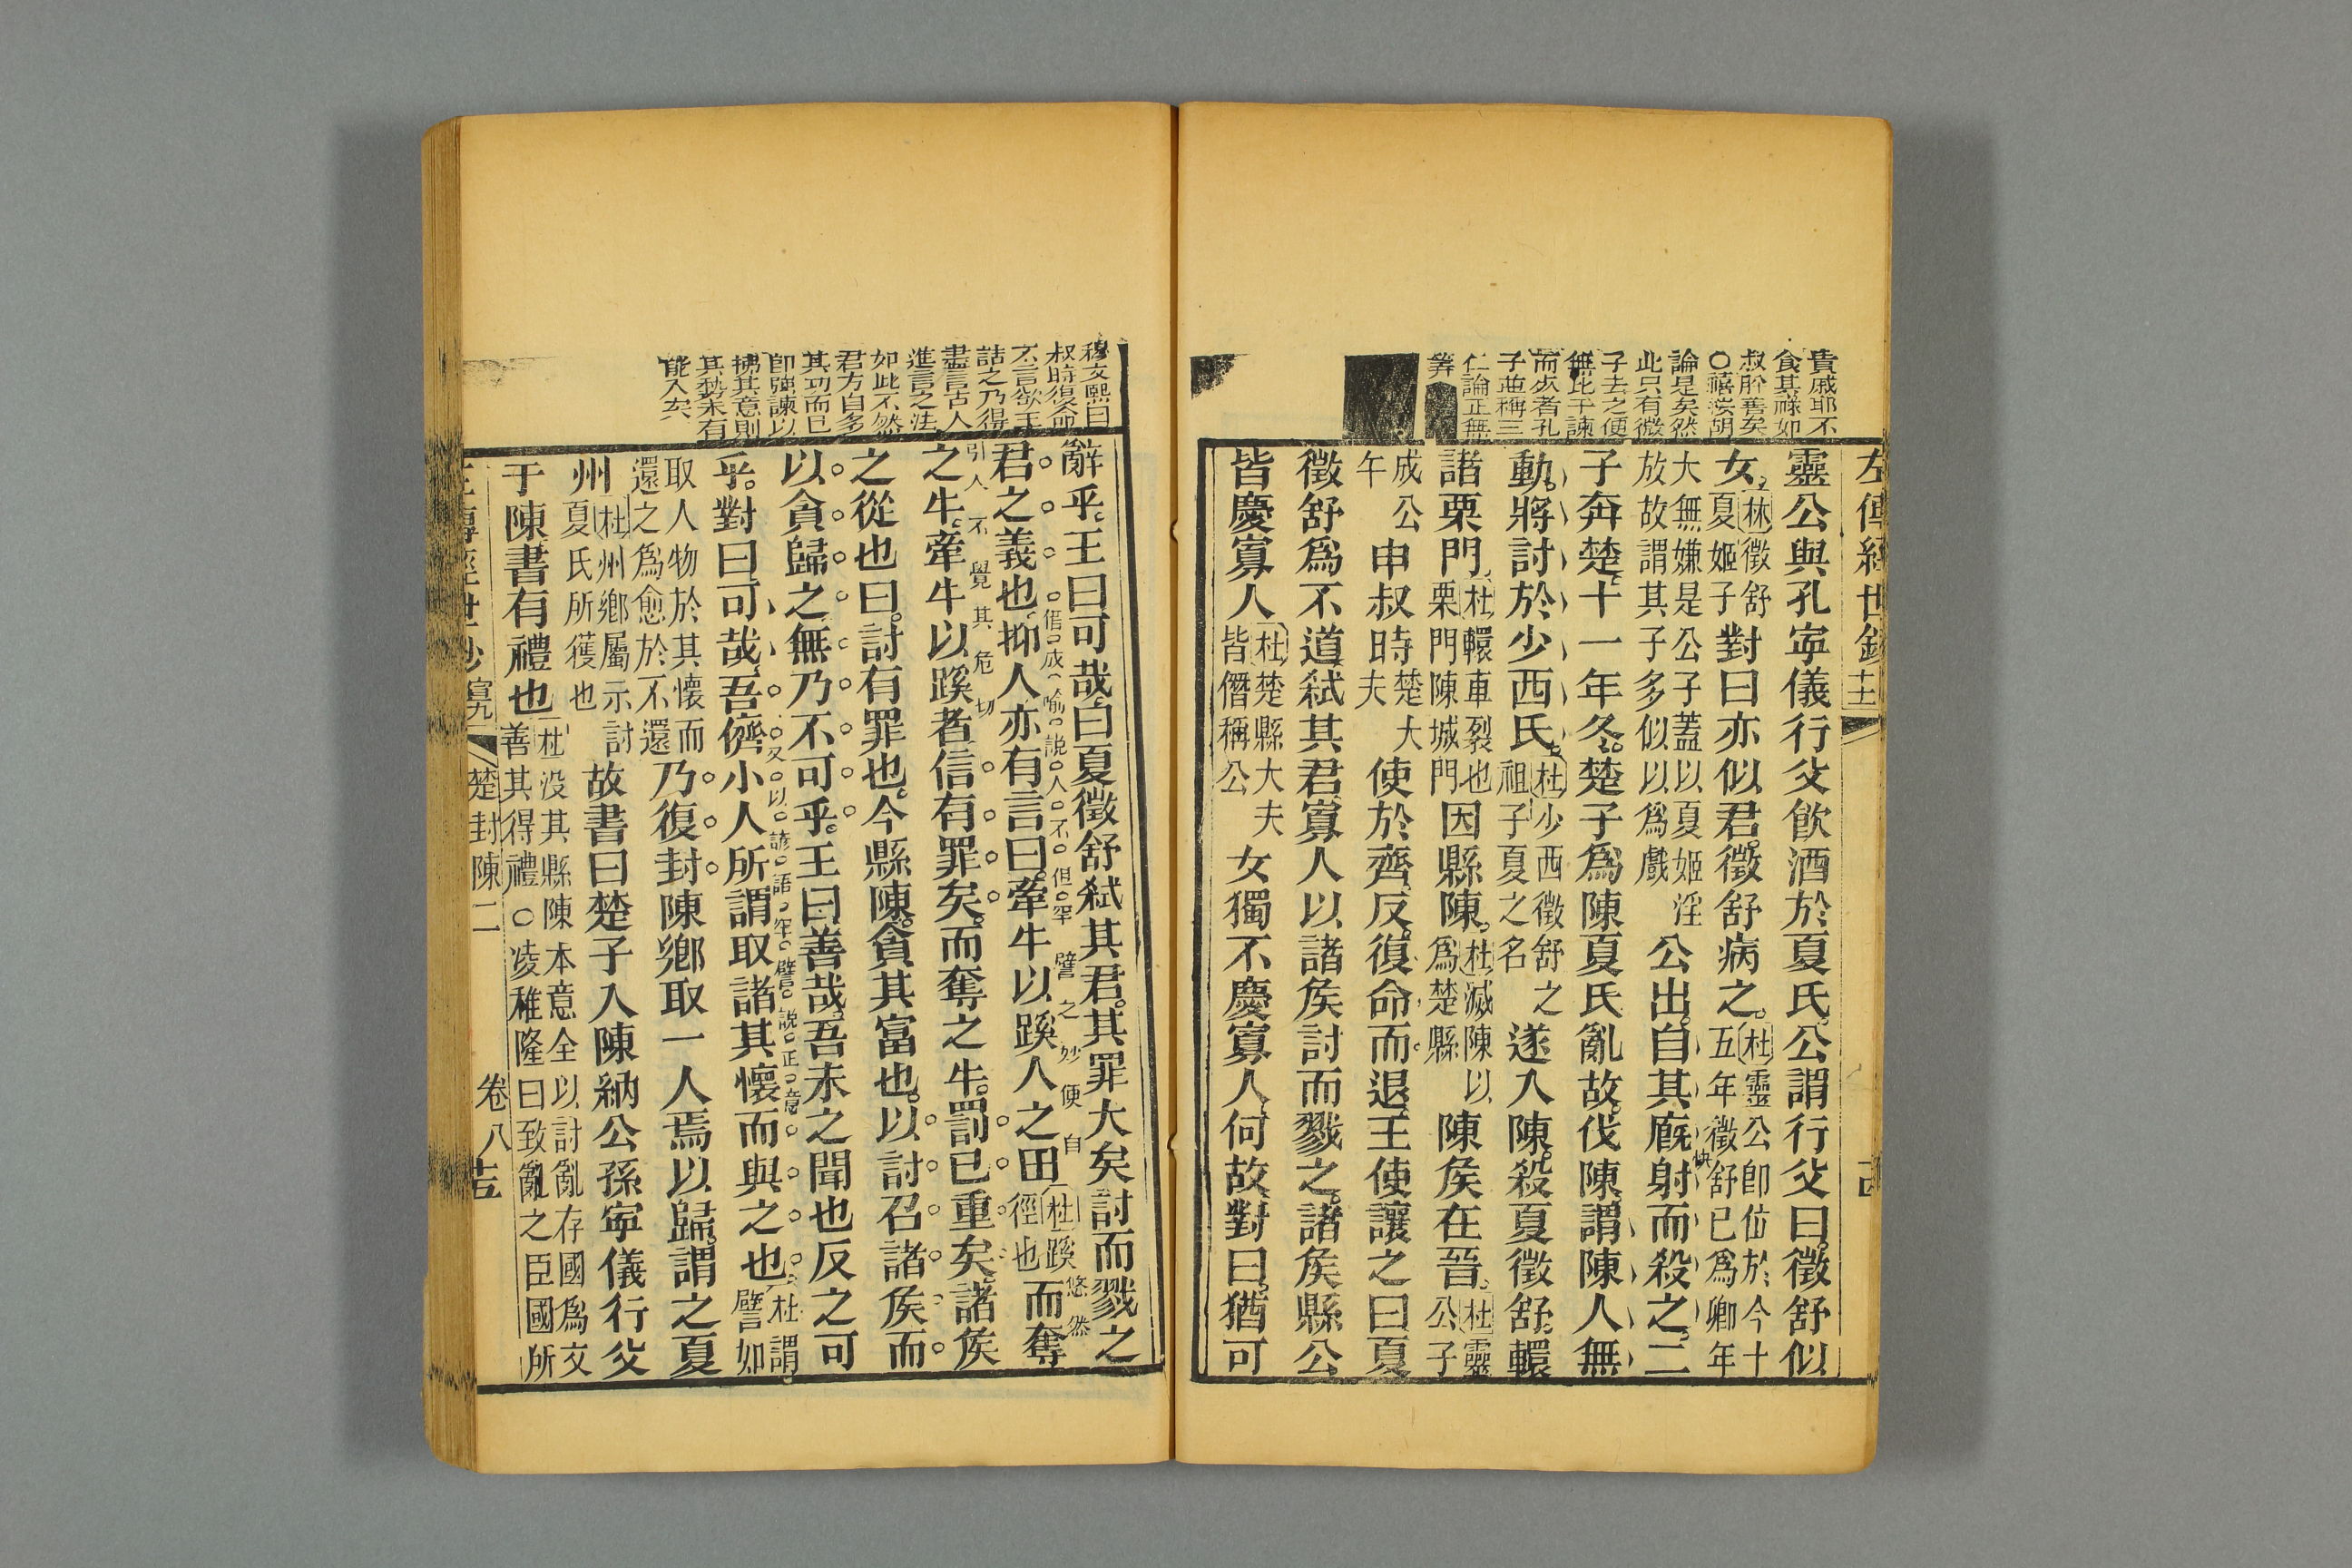 左傳經世鈔
貴戚耶不
食其祿如
叔肸善矣
○禧按胡
論是矣然
此只有微
子去之便
無比干諫
而㱕者孔
子並稱三
仁論正無
弊
靈公與孔寍儀行父飲酒於夏氏公謂行父曰徵舒似
女林徵舒夏姬子對曰亦似君徵舒病之杜靈公卽位於今十五年徵舒已爲卿年
大無嫌是公子蓋以夏姬淫放故謂其子多似以爲戲公出自其廐射而殺之二
子奔楚十一年冬楚子爲陳夏氏亂故伐陳謂陳人無
動將討於少西氏杜少西徵舒之祖子夏之名遂入陳殺夏徵舒轘
諸栗門杜轘車裂也栗門陳城門因縣陳杜滅陳以爲楚縣陳矦在晉杜靈公子
成公午申叔時楚大夫使於齊反復命而退王使讓之曰夏
徵舒爲不道弑其君寡人以諸矦討而戮之諸矦縣公
皆慶寡人杜楚縣大夫皆僭稱公女獨不慶寡人何故對曰猶可
穆文熙曰
叔時復命
不言欲王
詰之乃得
盡言古人
進言之法
如此不然
君方自多
其功而已
卽強諫以
拂其意則
其勢未有
能入矣
辭乎王曰可哉曰夏徵舒弑其君其罪大矣討而戮之
君之義也抑人亦有言曰牽牛以蹊人之田杜蹊徑也而奪
借成喻說人不但罕譬之妙便自悠然
之牛牽牛以蹊者信有罪矣而奪之牛罰已重矣諸矦
引人不覺其危切
之從也曰討有罪也今縣陳貪其富也以討召諸矦而
以貪歸之無乃不可乎王曰善哉吾未之聞也反之可
乎對曰可哉吾儕小人所謂取諸其懷而與之也杜謂譬如
又以諺語罕譬說正意
取人物於其懷而還之爲愈於不還乃復封陳鄉取一人焉以歸謂之夏
州杜州鄉屬示討夏氏所獲也故書曰楚子入陳納公孫寍儀行父
于陳書有禮也杜沒其縣陳本意全以討亂存國爲文善其得禮○凌稚隆曰致亂之臣國所
楚封陳二
卷八